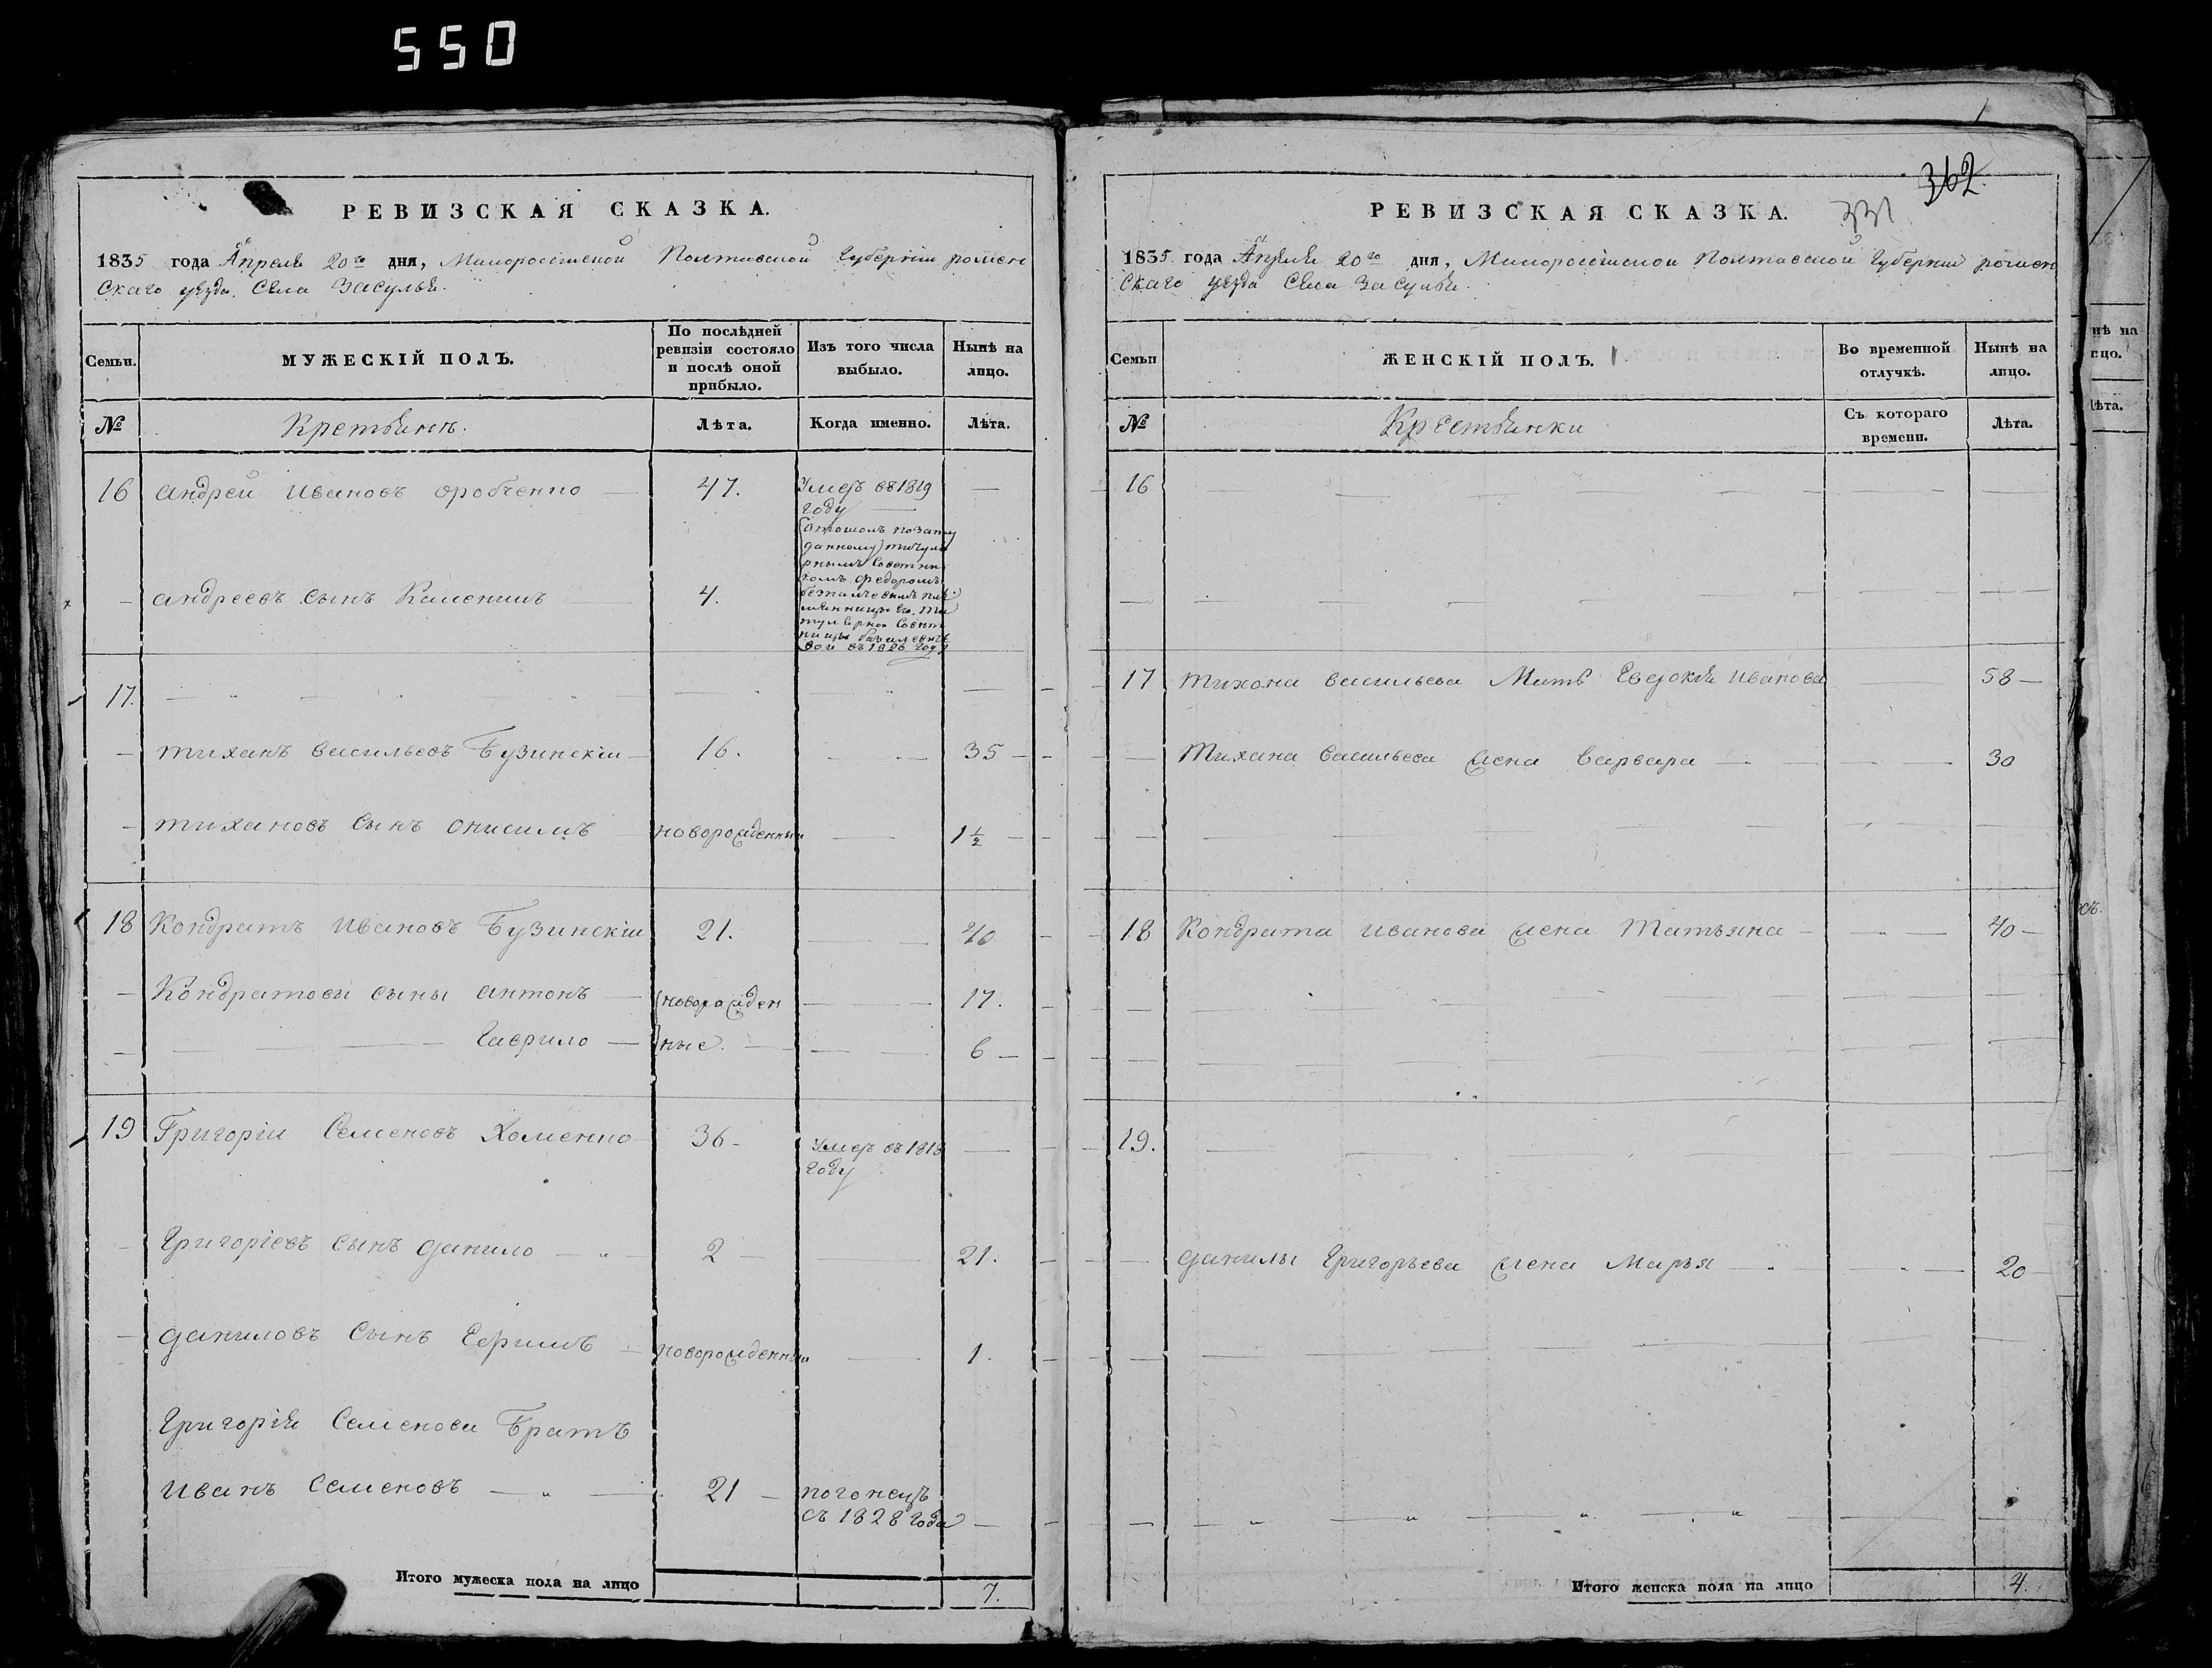 550
РЕВИЗСКАЯ СКАЗКА.
1835 года Апреля 20го дня, Малоросійской Полтавской Губерніи ромен
скаго уезда. Села Засулья.
Семьи.
МУЖЕСКІЙ ПОЛЪ.
По послѣдней
ревизіи состояло
и послѣ оной
прибыло.
Изъ того числа
выбыло.
Нынѣ на
лицо.
№
Лѣта.
Когда именно.
Лѣта.
16 Андрей Ивановъ 47. Умеръ въ 1819
году
андреевъ сынъ 4.
данному титуля
рнымъ Советни
комъ Федоромъ
въ 1826 году
17.
тиханъ васильевъ Бузинскіи 16. 35
тихановъ сынъ онисимъ новорожденныи 1½
18 Кондратъ Ивановъ Бузинскіи 21. 40
Кондратовы сыны антонъ новорожден 17.
Гаврило ные. 6
19 Григоріи Семеновъ Хоменко 36 Умеръ въ 1818
году
Григоріевъ сынъ данило 2 21.
даниловъ сынъ Ефимъ новорожденныи 1.
Григорія Семенова Братъ
иванъ Семеновъ 21
съ 1828 года
Итого мужеска пола на лицо 7.
362.
331
РЕВИЗСКАЯ СКАЗКА.
1835 года Апреля 20го дня, Малоросійской Полтавской Губерніи ромен
скаго уезда Села Засулья.
Семьи
ЖЕНСКІЙ ПОЛЪ.
Во временной
отлучкѣ.
Нынѣ на
лицо.
№
Крестьянки
Съ котораго
времени.
Лѣта.
16
17 тихона васильева Мать Евдокія иванова 58
Тихана васильева жена варвара 30
18 Кондрата иванова жена Татьяна 40
19.
данилы Григорьева жена Марья 20
Итого женска пола на лицо 4.
нѣ на
цо.
Лѣта.